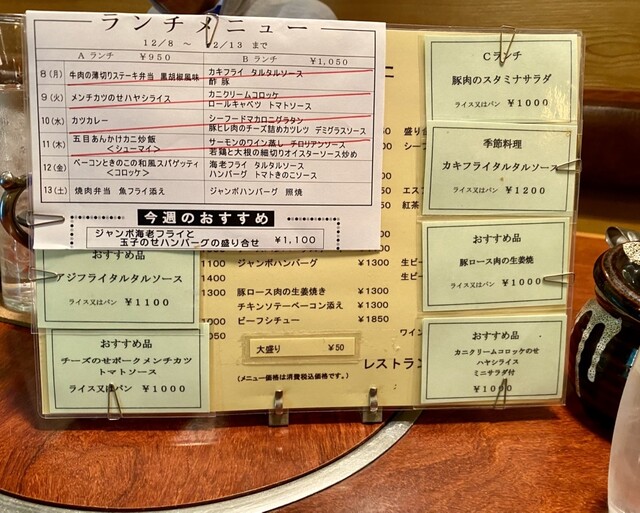 ランチメニュー
12/8 ～ 12/13 まで
Aランチ ¥950 Bランチ ¥1,050
8(月) 牛肉の薄切りステーキ弁当 黒胡椒風味 カキフライ タルタルソース
酢豚
9(火) メンチカツのせハヤシライス カニクリームコロッケ
ロールキャベツ トマトソース
10(水) カツカレー シーフードマカロニグラタン
豚ヒレ肉のチーズ詰めカツレツ デミグラスソース
11(木) 五目あんかけカニ炒飯 サーモンのワイン蒸し チロリアンソース
<シューマイ> 若鶏と大根の細切りオイスターソース炒め
12(金) ベーコンときのこの和風スパゲッティ 海老フライ タルタルソース
<コロッケ> ハンバーグ トマトきのこソース
13(土) 焼肉弁当 魚フライ添え ジャンボハンバーグ 照焼
今週のおすすめ
ジャンボ海老フライと
玉子のせハンバーグの盛り合せ ¥1,100
アジフライタルタルソース
ライス又はパン ¥1100
おすすめ品
チーズのせポークメンチカツ
トマトソース
ライス又はパン ¥1000
ジャンボハンバーグ ¥1300
豚ロース肉の生姜焼き ¥1300
チキンソテーベーコン添え ¥1300
ビーフシチュー ¥1850
大盛り ¥50
レストラン
(メニュー価格は消費税込価格です。)
盛り合
シーフ
エス
紅茶
生ビ
生ビ
ワイン
Cランチ
豚肉のスタミナサラダ
ライス又はパン ¥1000
季節料理
カキフライタルタルソース
ライス又はパン ¥1200
おすすめ品
豚ロース肉の生姜焼
ライス又はパン ¥1000
おすすめ品
カニクリームコロッケのせ
ハヤシライス
ミニサラダ付
¥1000